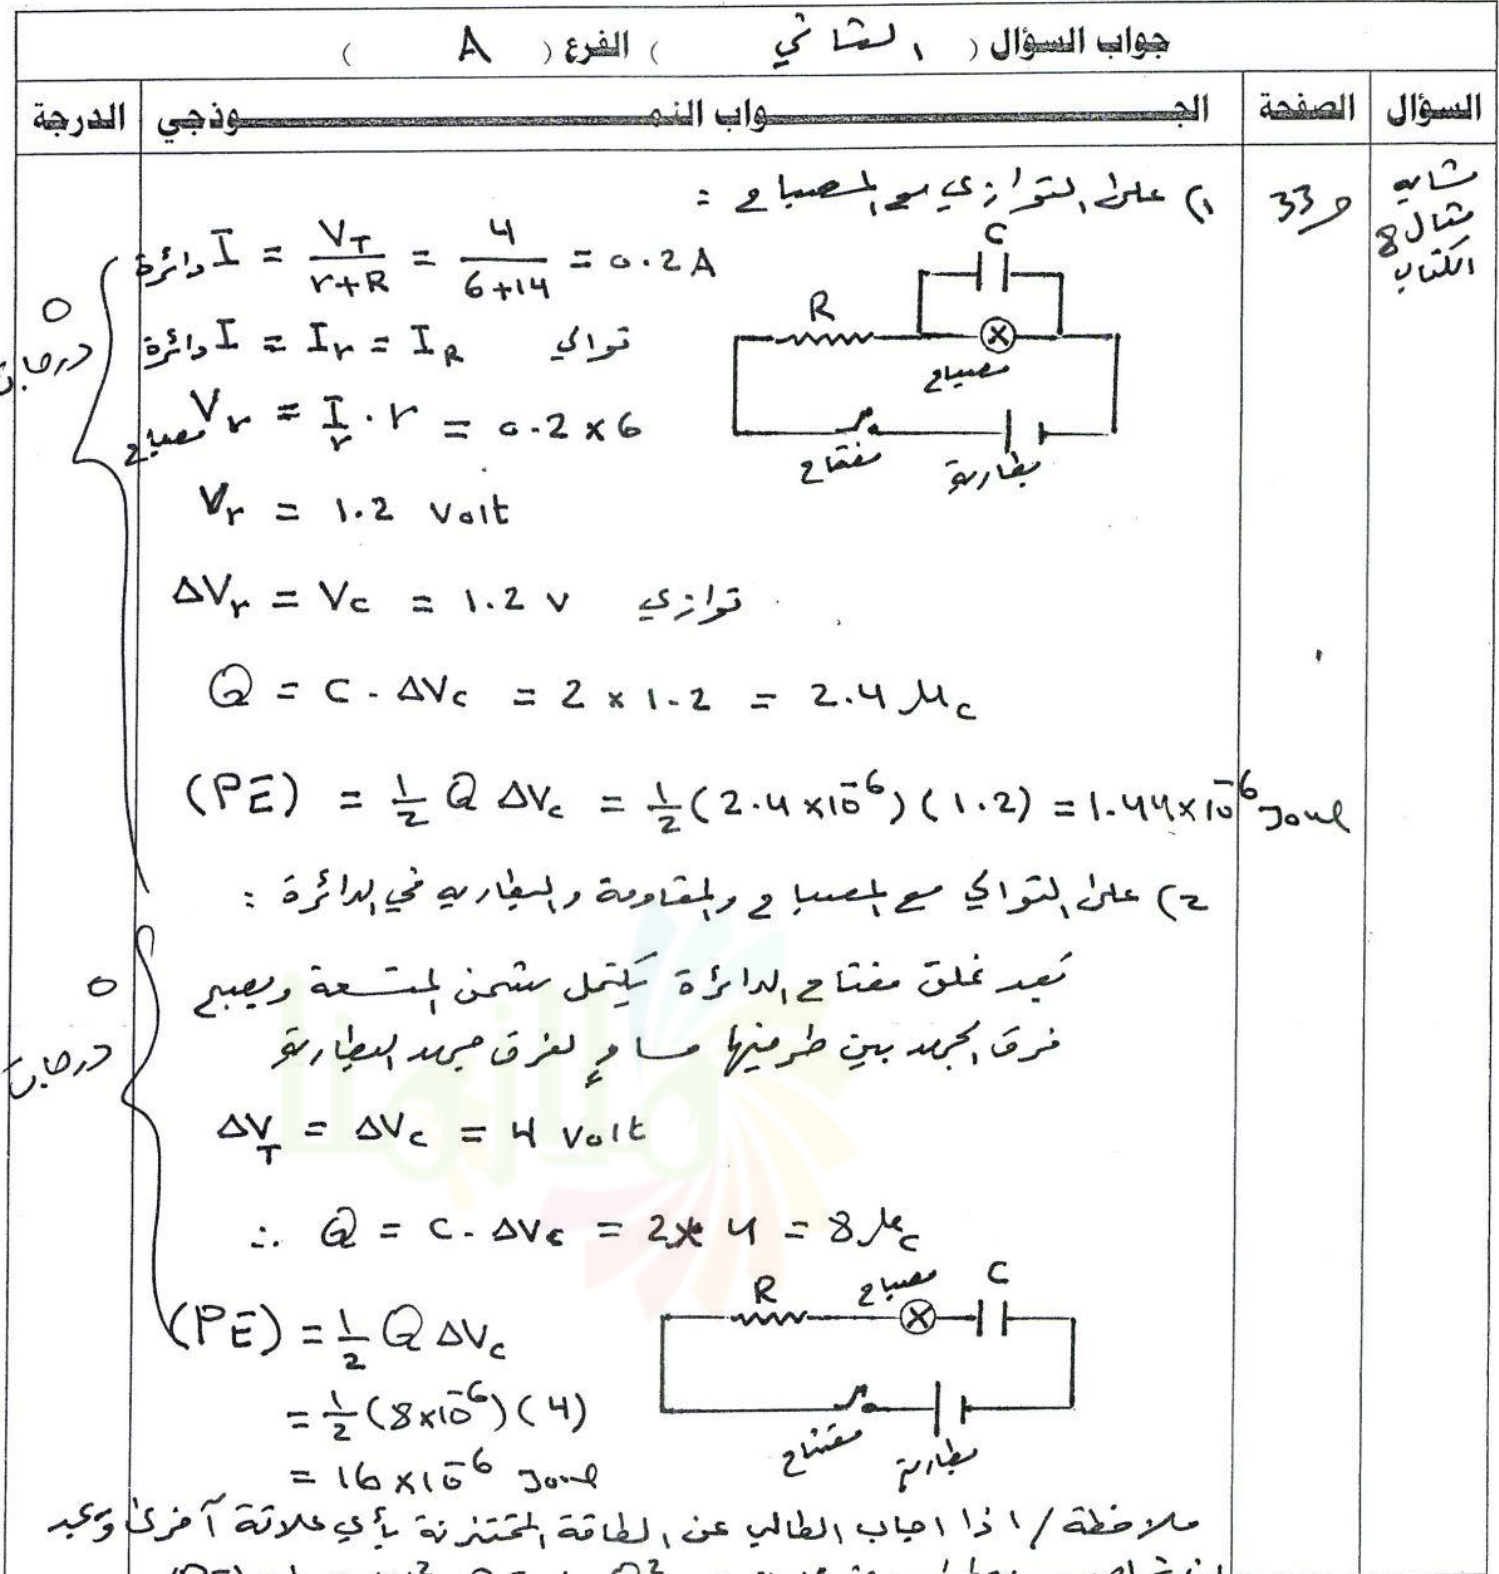 جواب السؤال ( الثاني ) الفرع ( A )
السؤال الصفحة الجـــواب النمـــوذجي الدرجة
شابه مثال 8 الكتاب
ص33
1) على التوازي مع المصباح :
I دائرة = V_T / (r+R) = 4 / (6+14) = 0.2 A
I دائرة = I_r = I_R توالي
V_r مصباح = I_r . r = 0.2 × 6
V_r = 1.2 Volt
ΔV_r = V_c = 1.2 V توازي
Q = C . ΔV_c = 2 × 1.2 = 2.4 μc
(PE) = 1/2 Q ΔV_c = 1/2 (2.4 × 10^-6) (1.2) = 1.44 × 10^-6 Joul
5 درجات
C
R
مصباح
مفتاح
بطارية
2) على التوالي مع المصباح والمقاومة والبطارية في الدائرة :
بعد غلق مفتاح الدائرة يكتمل شحن المتسعة ويصبح
فرق الجهد بين طرفيها مساوٍ لفرق جهد البطارية
ΔV_T = ΔV_c = 4 Volt
∴ Q = C . ΔV_c = 2 × 4 = 8 μc
(PE) = 1/2 Q ΔV_c
= 1/2 (8 × 10^-6) (4)
= 16 × 10^-6 Joul
5 درجات
R مصباح C
مفتاح
بطارية
ملاحظة / اذا اجاب الطالب عن الطاقة المختزنة بأي علاقة آخرى
ملازمنا